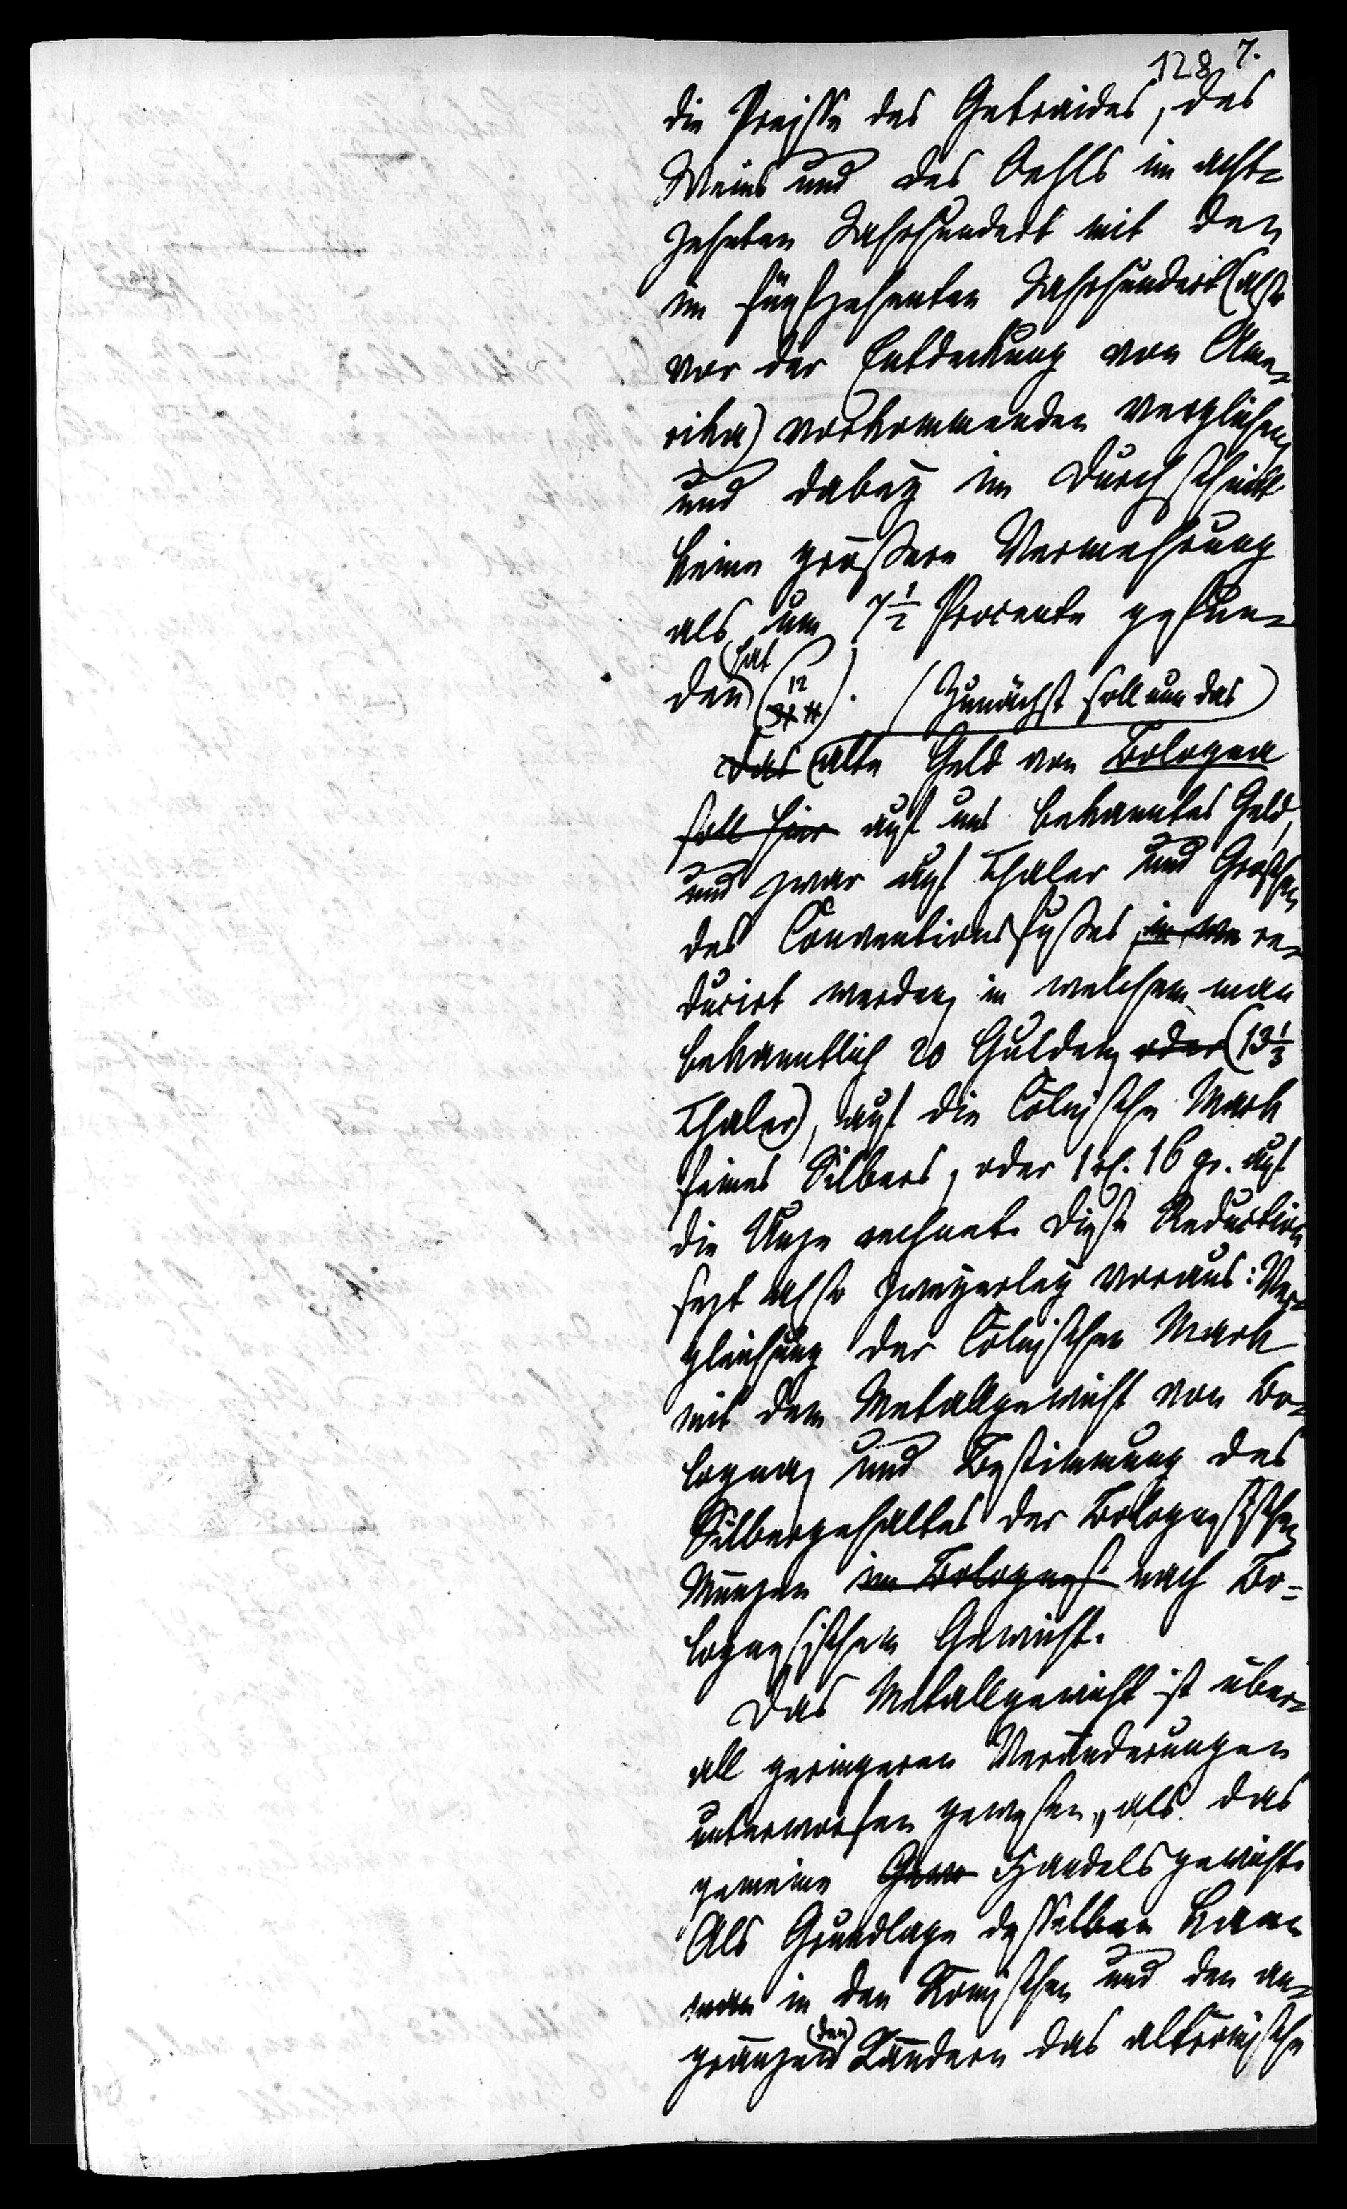 128 7.
die Preisse des Getraides, des
Weins und des Oehls im acht-
zehnten Jahrhundert mit den
im fünfzehenten Jahrhundert (also
vor der Entdeckung von Ame-
rika) vorkommenden verglichen
und dabey im Durchschnitt
keine größere Vermehrung
als um 7 1/2 Procente gefun-
hat
den (12). (Zunächst soll nun das)
Das alte Geld von Bologna
soll hier auf uns bekanntes Geld,
und zwar auf Thaler und Groschen
des Conventionsfußes re-
ducirt werden, in welchem man
bekanntlich 20 Gulden, oder (13 1/3
Thaler), auf die Cölnische Mark
feines Silbers, oder 1 rl. 16 gr. auf
die Unze rechnet. Diese Reduction
sezt also zweyerley voraus: Ver-
gleichung der Cölnischen Mark
mit dem Metallgewicht von Bo-
logna, und Bestimmung des
Silbergehaltes der Bolognesischen
Münzen im Bolognes nach Bo-
lognesischem Gewicht.
Das Metallgewicht ist über-
all geringeren Veränderungen
unterworfen gewesen, als das
gemeine Gew Handelsgewicht.
Als Grundlage desselben kann
man in den Römischen und den an-
(den)
gränzend Ländern das altrömische